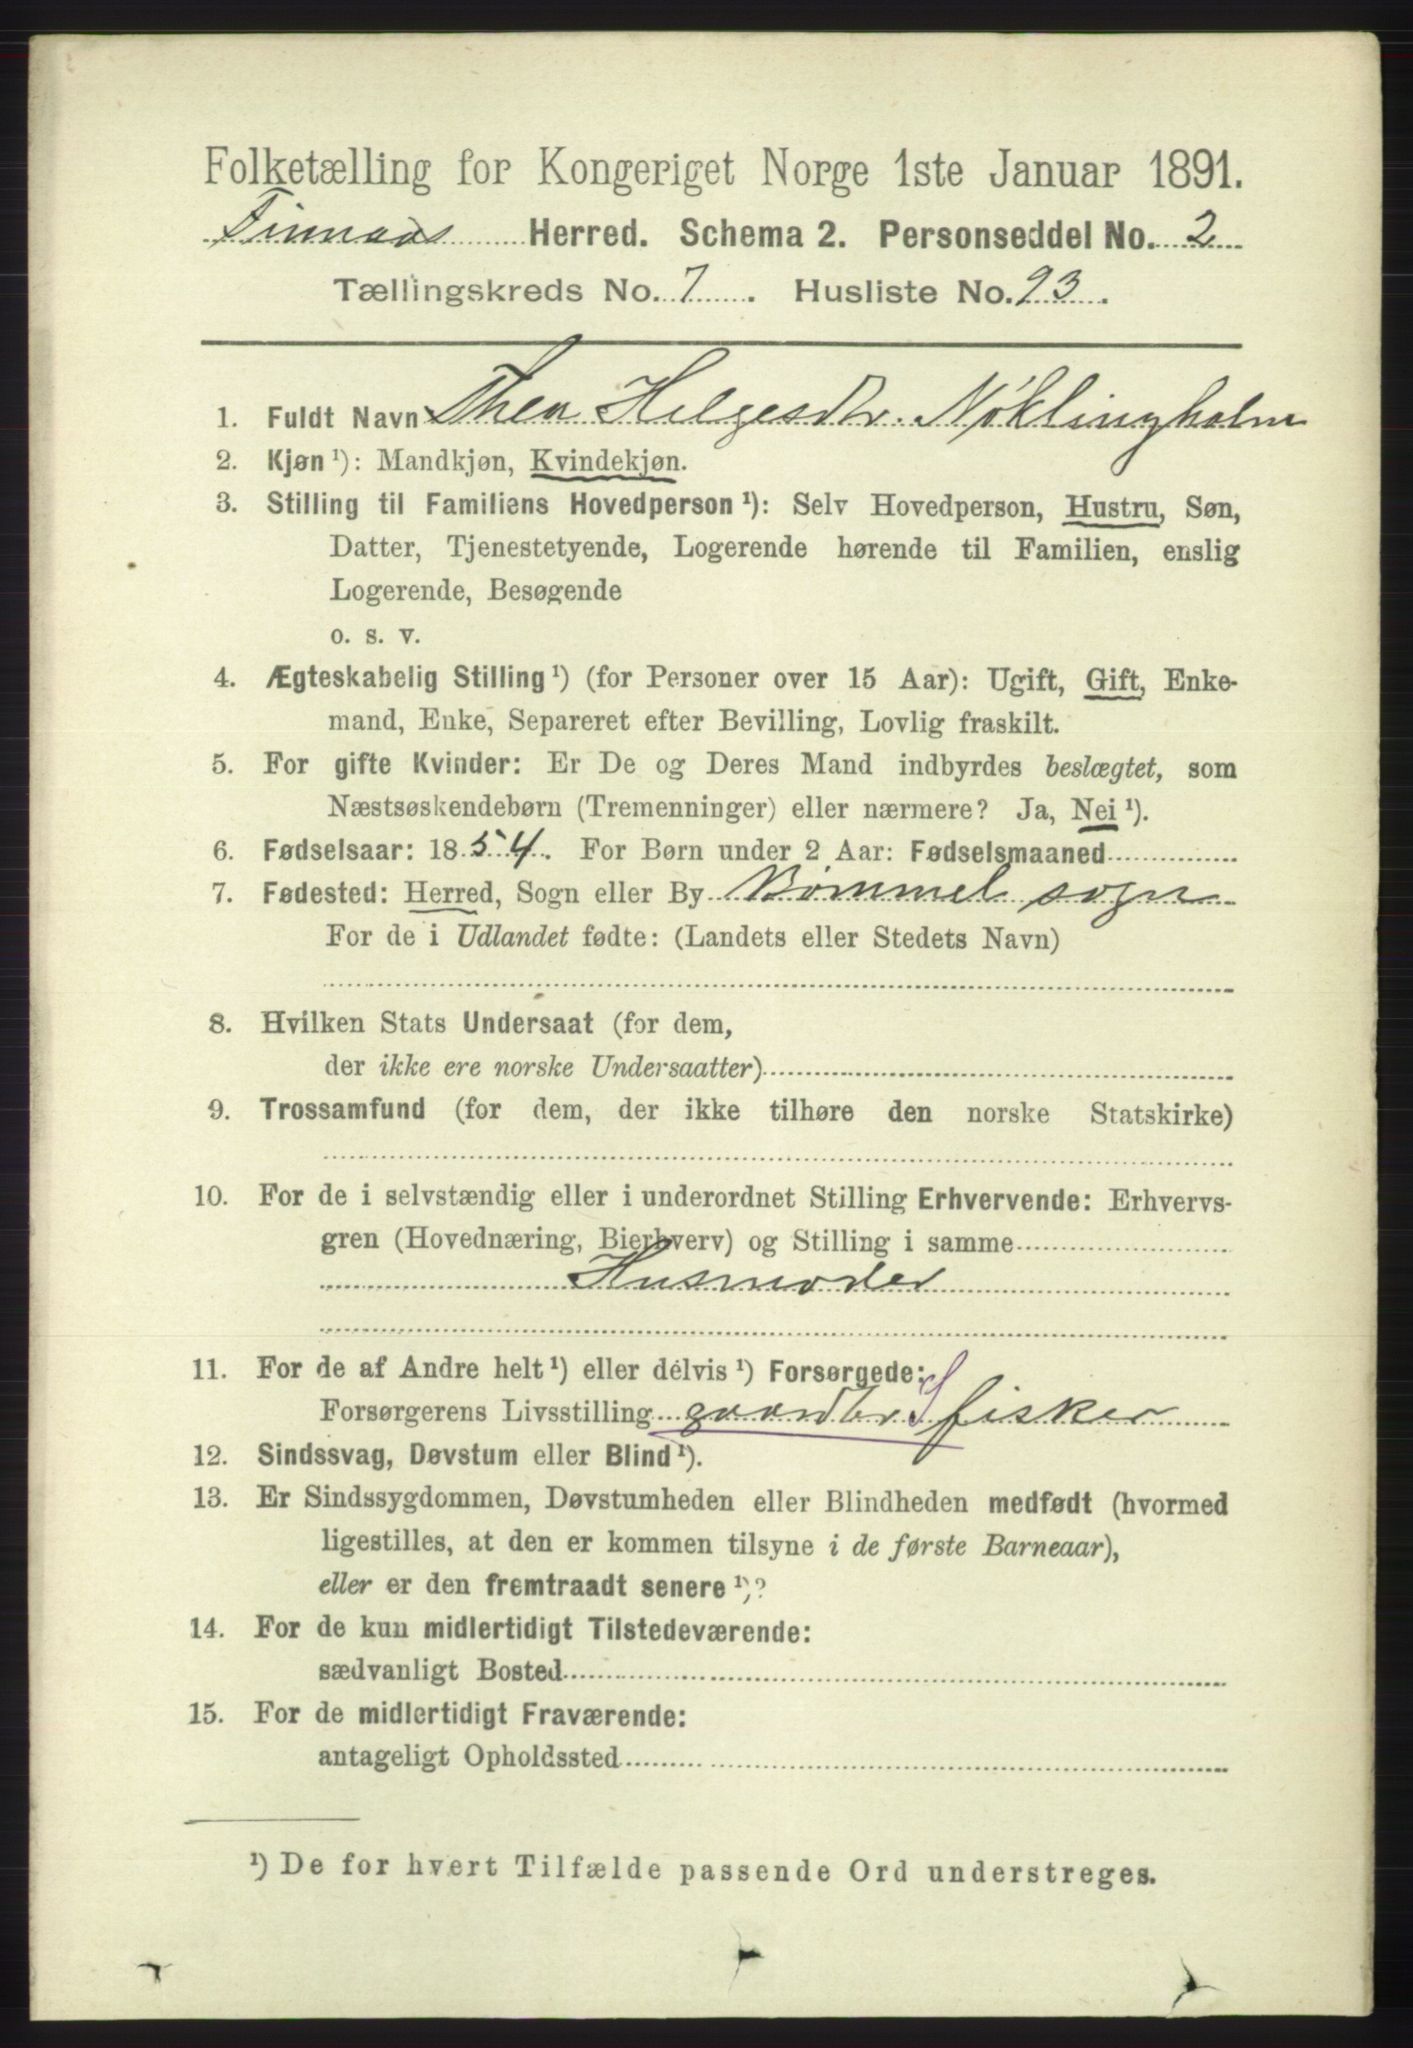 Folketælling for Kongeriget Norge 1ste Januar 1891.
Finnaas Herred. Schema 2. Personseddel No. 2
Tællingskreds No. 7. Husliste No. 93.
1. Fuldt Navn Thea Helgesdtr. Nøklingholm
2. Kjøn ¹): Mandkjøn, Kvindekjøn.
3. Stilling til Familiens Hovedperson ¹): Selv Hovedperson, Hustru, Søn,
Datter, Tjenestetyende, Logerende hørende til Familien, enslig
Logerende, Besøgende
o. s. v.
4. Ægteskabelig Stilling ¹) (for Personer over 15 Aar): Ugift, Gift, Enke-
mand, Enke, Separeret efter Bevilling, Lovlig fraskilt.
5. For gifte Kvinder: Er De og Deres Mand indbyrdes beslægtet, som
Næstsøskendebørn (Tremenninger) eller nærmere? Ja, Nei ¹).
6. Fødselsaar: 1854. For Børn under 2 Aar: Fødselsmaaned
7. Fødested: Herred, Sogn eller By Bömmel sogn
For de i Udlandet fødte: (Landets eller Stedets Navn)
8. Hvilken Stats Undersaat (for dem,
der ikke ere norske Undersaatter)
9. Trossamfund (for dem, der ikke tilhøre den norske Statskirke)
10. For de i selvstændig eller i underordnet Stilling Erhvervende: Erhvervs-
gren (Hovednæring, Bierhverv) og Stilling i samme
Husmoder
11. For de af Andre helt ¹) eller delvis ¹) Forsørgede:
Forsørgerens Livsstilling gaardbr. S fisker
12. Sindssvag, Døvstum eller Blind ¹).
13. Er Sindssygdommen, Døvstumheden eller Blindheden medfødt (hvormed
ligestilles, at den er kommen tilsyne i de første Barneaar),
eller er den fremtraadt senere ¹)?
14. For de kun midlertidigt Tilstedeværende:
sædvanligt Bosted
15. For de midlertidigt Fraværende:
antageligt Opholdssted
¹) De for hvert Tilfælde passende Ord understreges.